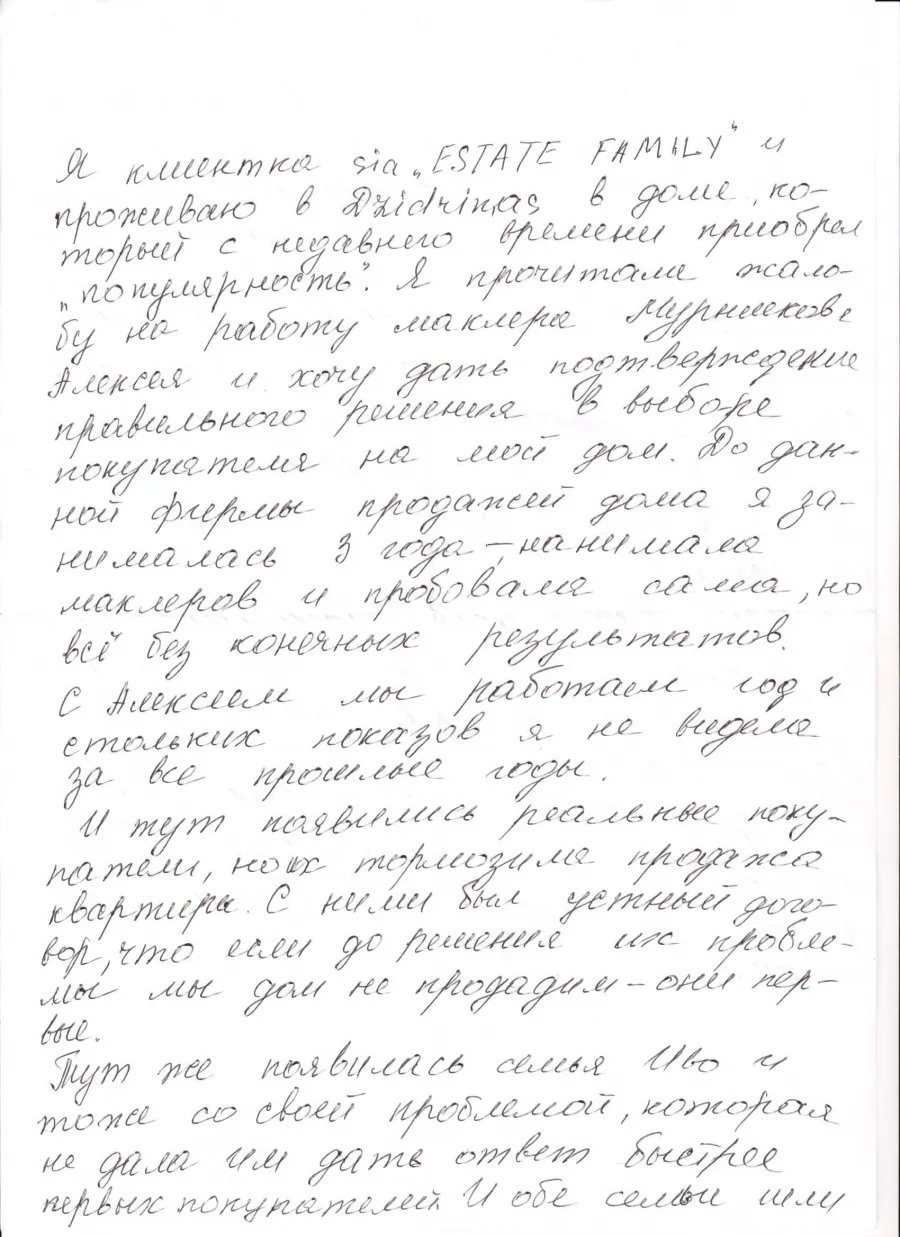 Я клиентка sia „ESTATE FAMILY" и
проживаю в Dzidriņas в доме, ко-
торый с недавнего времени приобрел
„популярность". Я прочитала жало-
бу на работу маклера Мурникова
Алексея и хочу дать подтверждение
правильного решения в выборе
покупателя на мой дом. До дан-
ной фирмы продажей дома я за-
нималась 3 года – нанимала
маклеров и пробовала сама, но
всё без конечных результатов.
С Алексеем мы работаем год и
стольких показов я не видела
за все прошлые годы.
И тут появились реальные поку-
патели, но их тормозила продажа
квартиры. С ними был устный дого-
вор, что если до решения их пробле-
мы мы дом не продадим – они пер-
вые.
Тут же появилась семья Иво и
тоже со своей проблемой, которая
не дала им дать ответ быстрее
первых покупателей. И обе семьи шли